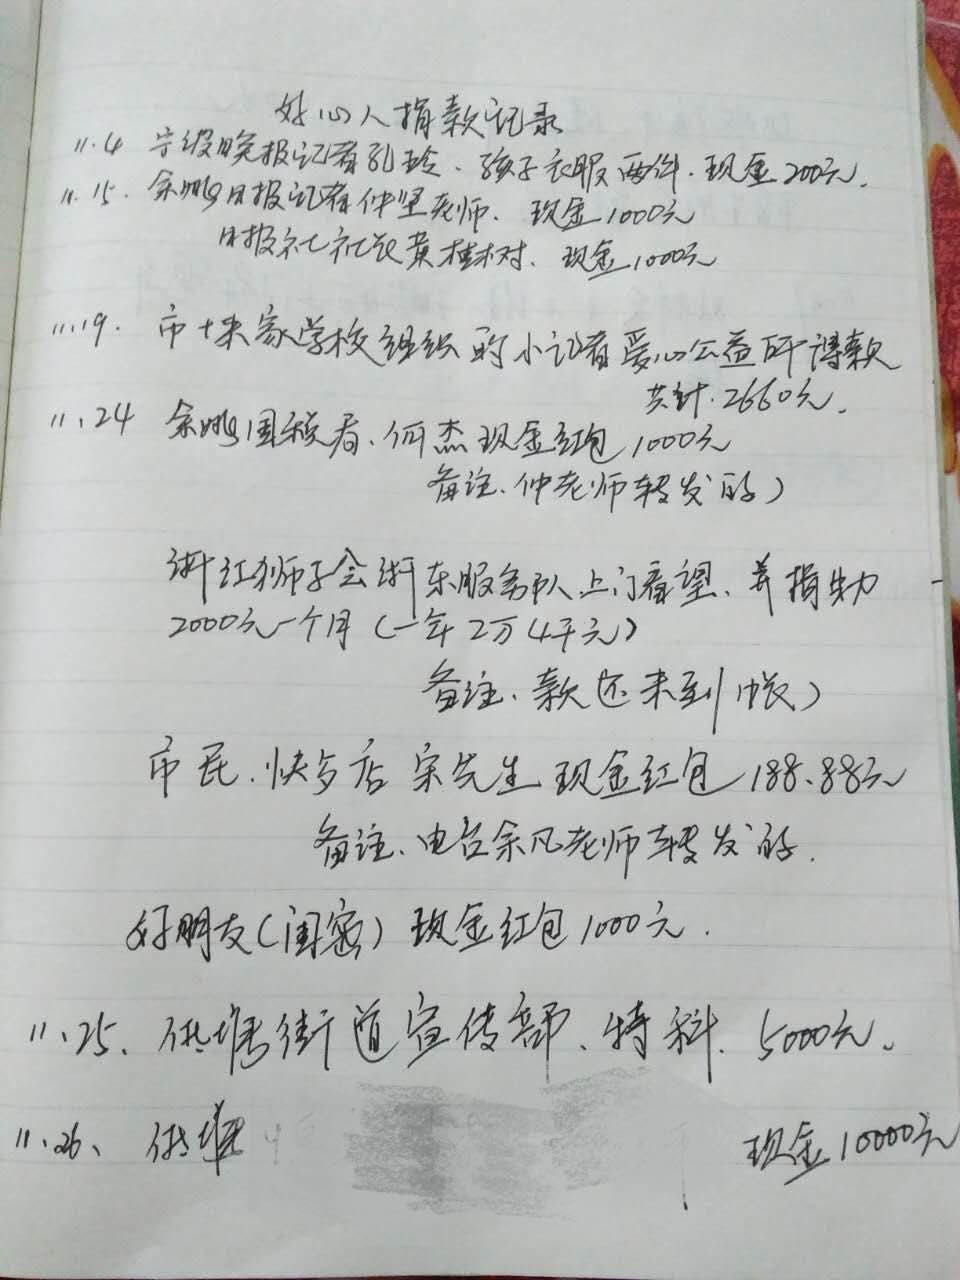 好心人捐款记录
11.4 宁波晚报记者孔玲、孩子衣服两件、现金200元.
11.15. 余姚日报记者仲坚老师. 现金1000元
日报社社长黄桂树、现金1000元
11.19. 市十来家学校组织的小记者爱心公益所得款
共计.2660元.
11.24 余姚国税局、何杰现金红包1000元
备注、仲老师转发的)
浙江狮子会浙东服务队上门看望、并捐助
2000元一个月(一年2万4千元)
备注、款还未到帐)
市民、快乡店 宋先生 现金红包188.88元
备注、电台余凡老师转发的.
好朋友(闺密) 现金红包1000元.
11.25、低塘街道宣传部、特科、5000元、
11.26、低塘 现金10000元